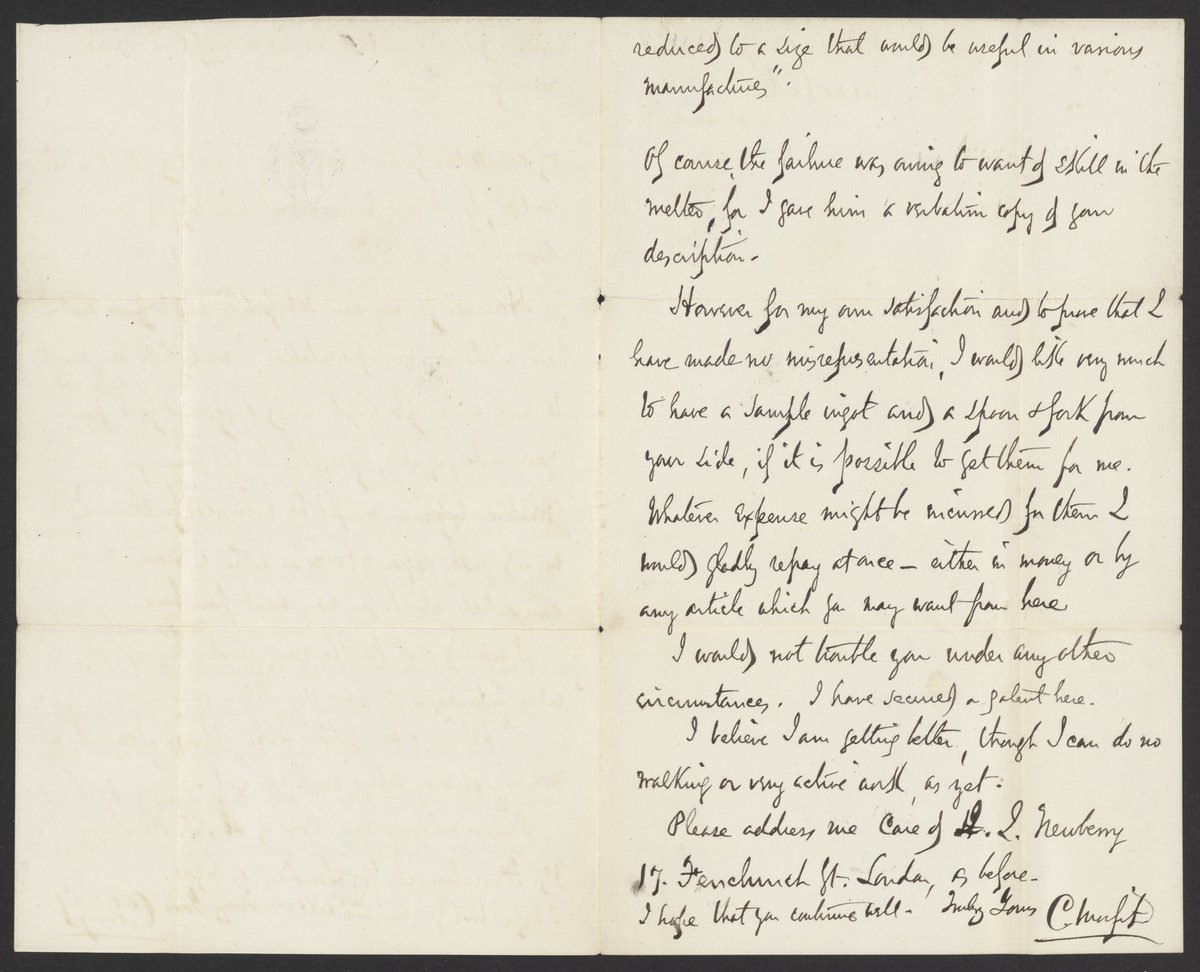 reduced to a size that would be useful in various
manufactures".
Of course, the failure was owing to want of skill in the
melter, for I gave him a verbatim copy of your
description.
However for my own satisfaction and to prove that I
have made no misrepresentation, I would like very much
to have a sample ingot and a spoon & fork from
your side, if it is possible to get them for me.
Whatever expense might be incurred for them I
would gladly repay at once – either in money or by
any article which you may want from here
I would not trouble you under any other
circumstances. I have secured a patent here.
I believe I am getting better, though I can do no
walking or very active work, as yet.
Please address me Care of I. Newberry
17. Fenchurch St. London, as before.
I hope that you continue well. Truly Yours C. Morfit